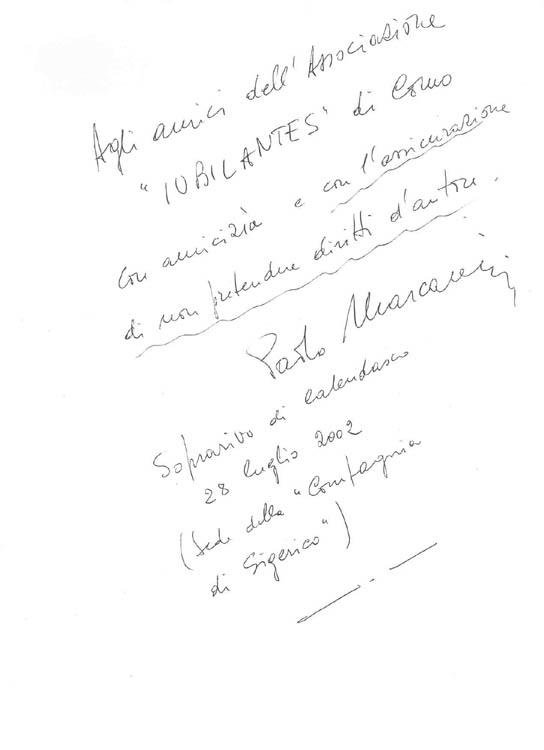 Agli amici dell'Associazione
"IUBILANTES" di Como
con amicizia e con l'assicurazione
di non pretendere diritti d'autore.
Paolo Mascarelli
Soprarivo di Calendasco
28 luglio 2002
(Sede della "Compagnia
di Sigerico")